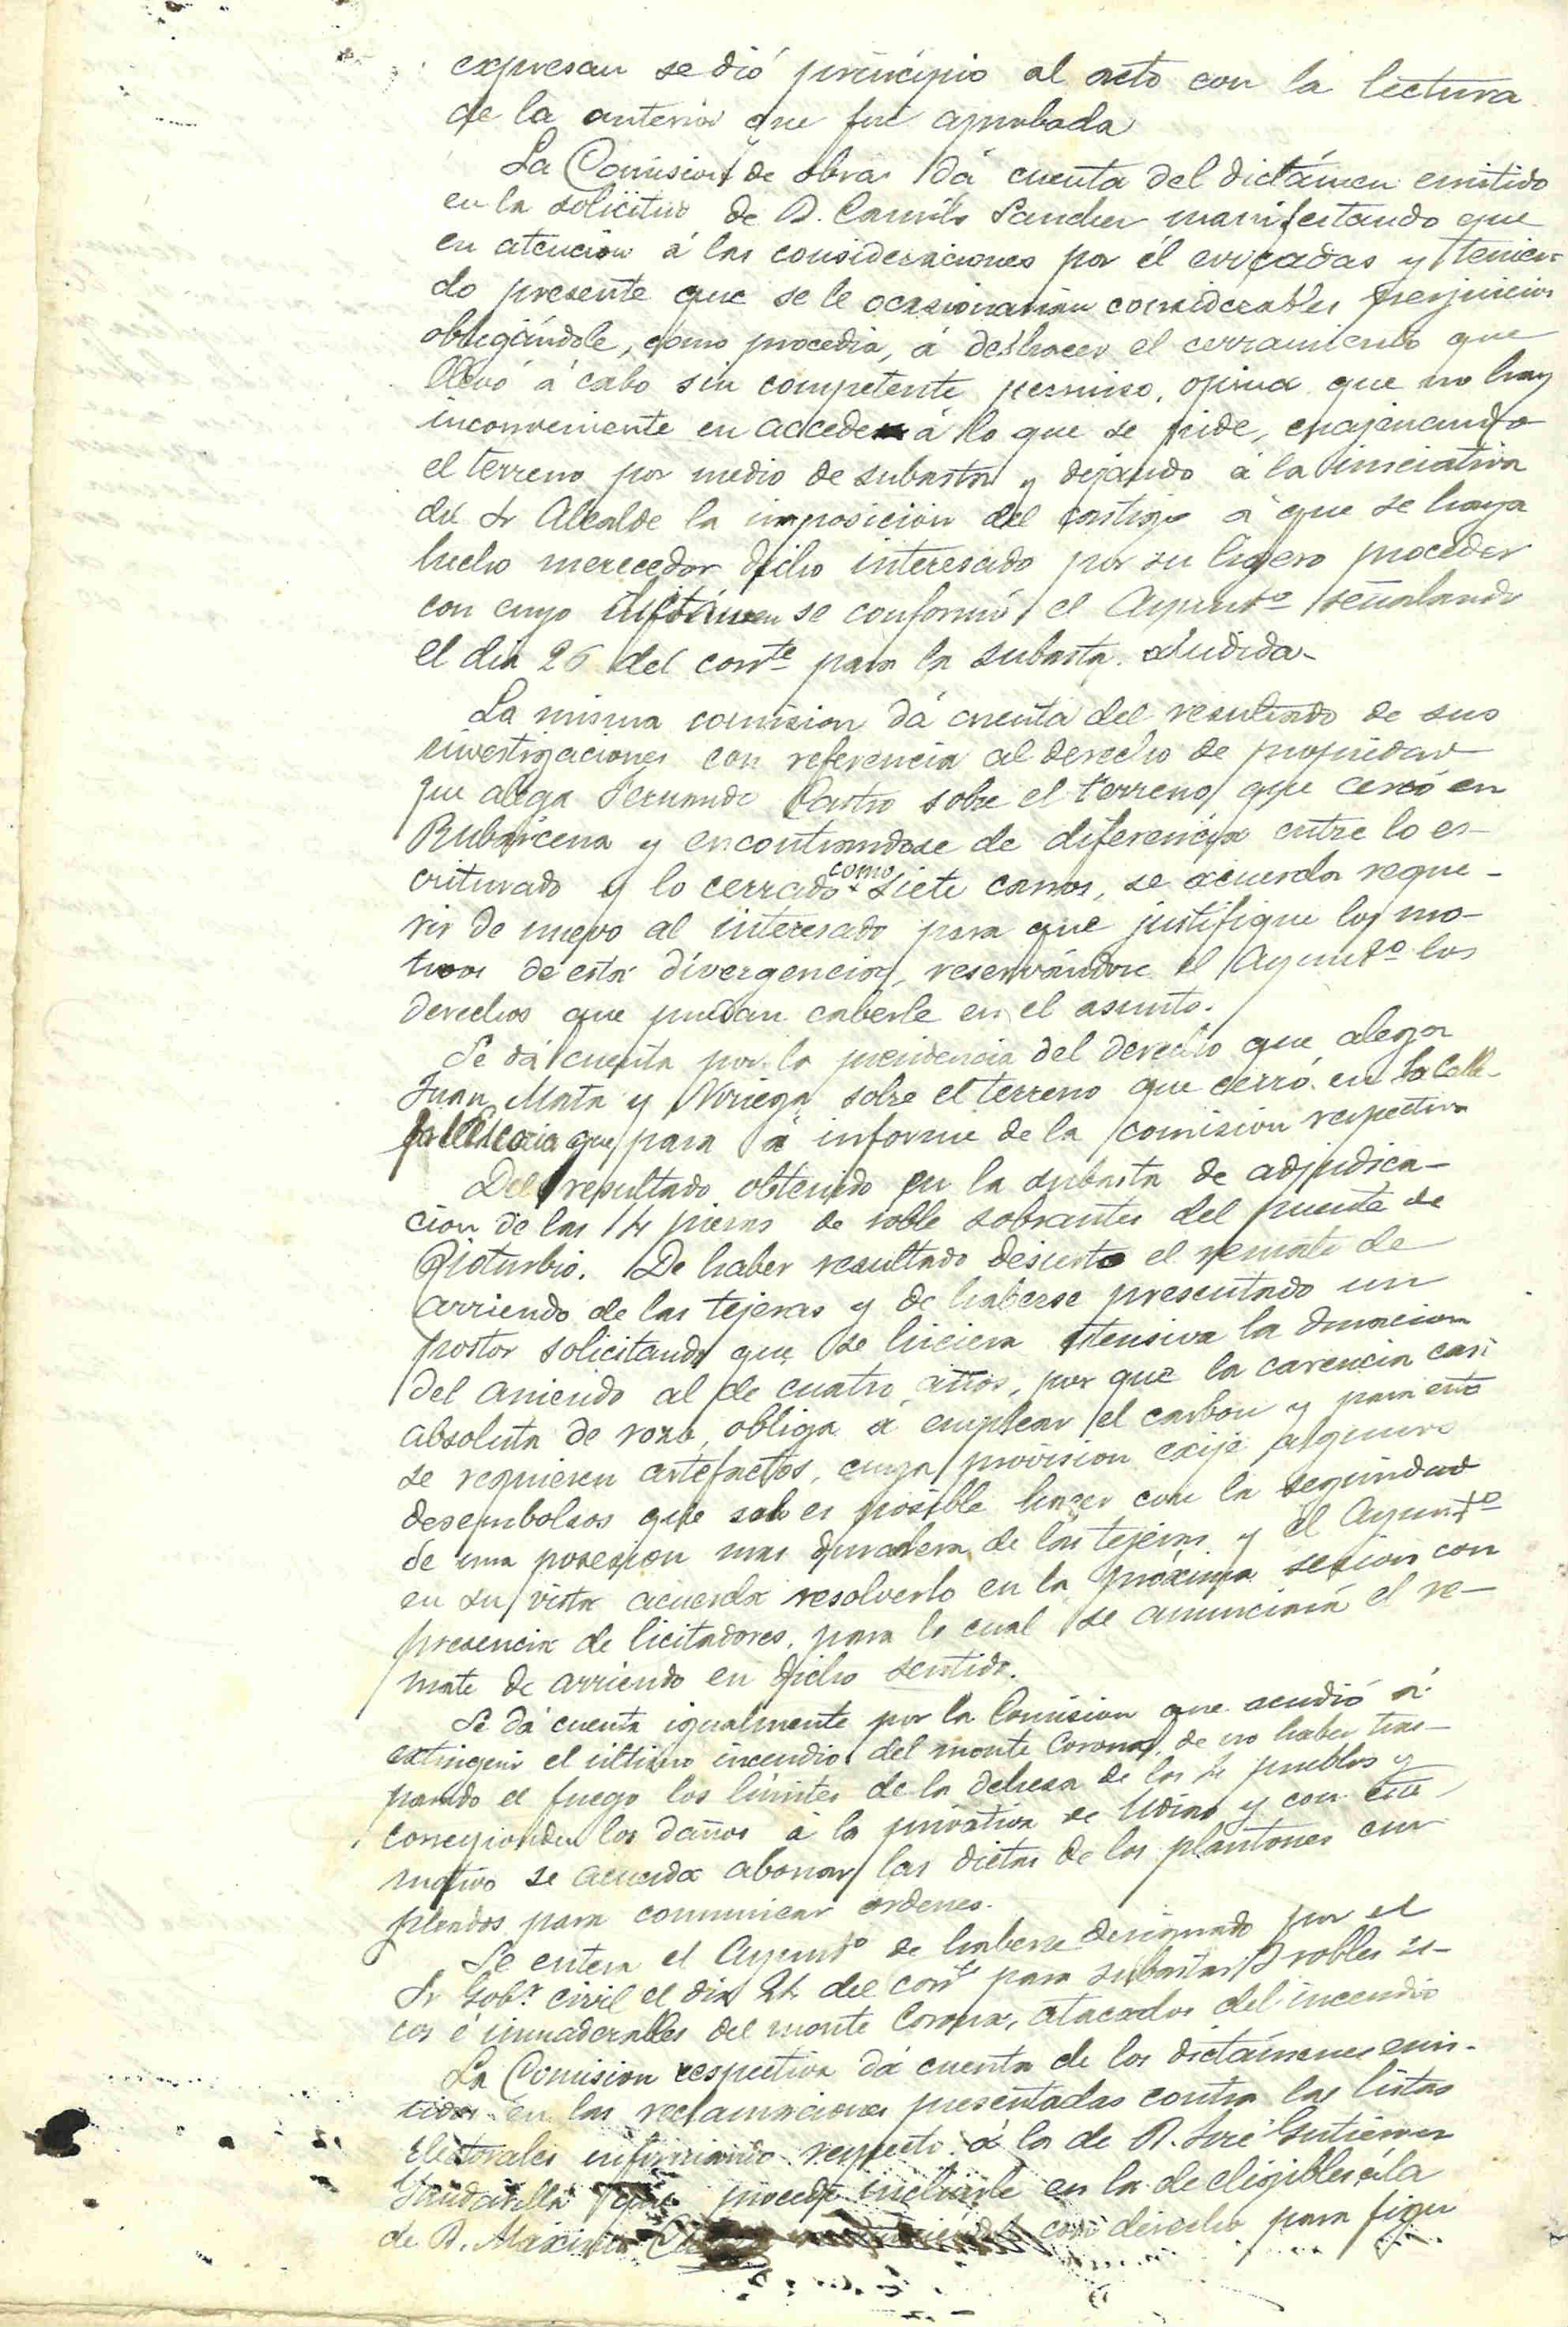 expresan se dió principio al acto con la lectura
de la anterior que fué aprobada
La Comision de obras dá cuenta del dictámen emitido
en la solicitud de D. Camilo Sanchez manifestando que
en atencion á las consideraciones por él evocadas y tenien-
do presente que se le ocasionarian considerables perjuicios
obligándole, como procedia, á deshacer el cerramiento que
llevó á cabo sin competente permiso, opina que no hay
inconveniente en acceder á lo que se pide, enajenando
el terreno por medio de subasta y dejando á la iniciativa
del Sr Alcalde la imposicion del castigo á que se haya
hecho merecedor dicho interesado por su ligero proceder
con cuyo dictámen se conformó el Ayuntº señalando
el dia 26 del corrte para la subasta aludida-
La misma comision dá cuenta del resultado de sus
investigaciones con referencia al derecho de propiedad
que alega Fernando Castro sobre el terreno que cercó en
Rubárcena y encontrandose de diferencia entre lo es-
criturado y lo cerrado como siete carros, se acuerda reque-
rir de nuevo al interesado para que justifique los mo-
tivos de esta divergencia, reservándose el Ayuntº los
derechos que puedan caberle en el asunto.
Se dá cuenta por la presidencia del derecho que alega
Juan Mata y Noriega sobre el terreno que cerró en La Calle-
que pasa á informe de la comision respectiva
Del resultado obtenido en la subasta de adjudica-
cion de las 14 piezas de roble sobrantes del puente de
Rioturbio. De haber resultado desierto el remate de
arriendo de las tejeras y de haberse presentado un
postor solicitando que se hiciera stensiva la duracion
del arriendo al de cuatro años, por que la carencia casi
absoluta de rozo, obliga á emplear el carbon y para esto
se requieren artefactos, cuya provision exije algunos
desembolsos que solo es posible hacer con la seguridad
de una posesion mas duradera de las tejeras y el Ayuntº
en su vista acuerda resolverlo en la próxima sesion con
presencia de licitadores, para lo cual se anunciará el re-
mate de arriendo en dicho sentido.
Se dá cuenta igualmente por la Comision que acudió á
extinguir el último incendio del monte Corona, de no haber tras-
pasado el fuego los límites de la dehesa de los 4 pueblos y
corresponden los daños á la privativa de Udias y con este
motivo se acuerda abonar las dietas de los plantones em-
pleados para comunicar ordenes.
Se entera el Ayuntº de haberse designado por el
Sr Gobr civil el dia 24 del corrte para subastar robles se-
cos é inmaderables del monte Corona, atacados del incendio
La Comision respectiva dá cuenta de los dictámenes emi-
tidos en las reclamaciones presentadas contra las listas
electorales informando respecto á la de D. José Gutierrez
que procede incluirle en la de elegibles á la
de D. Máximo con derecho para figu